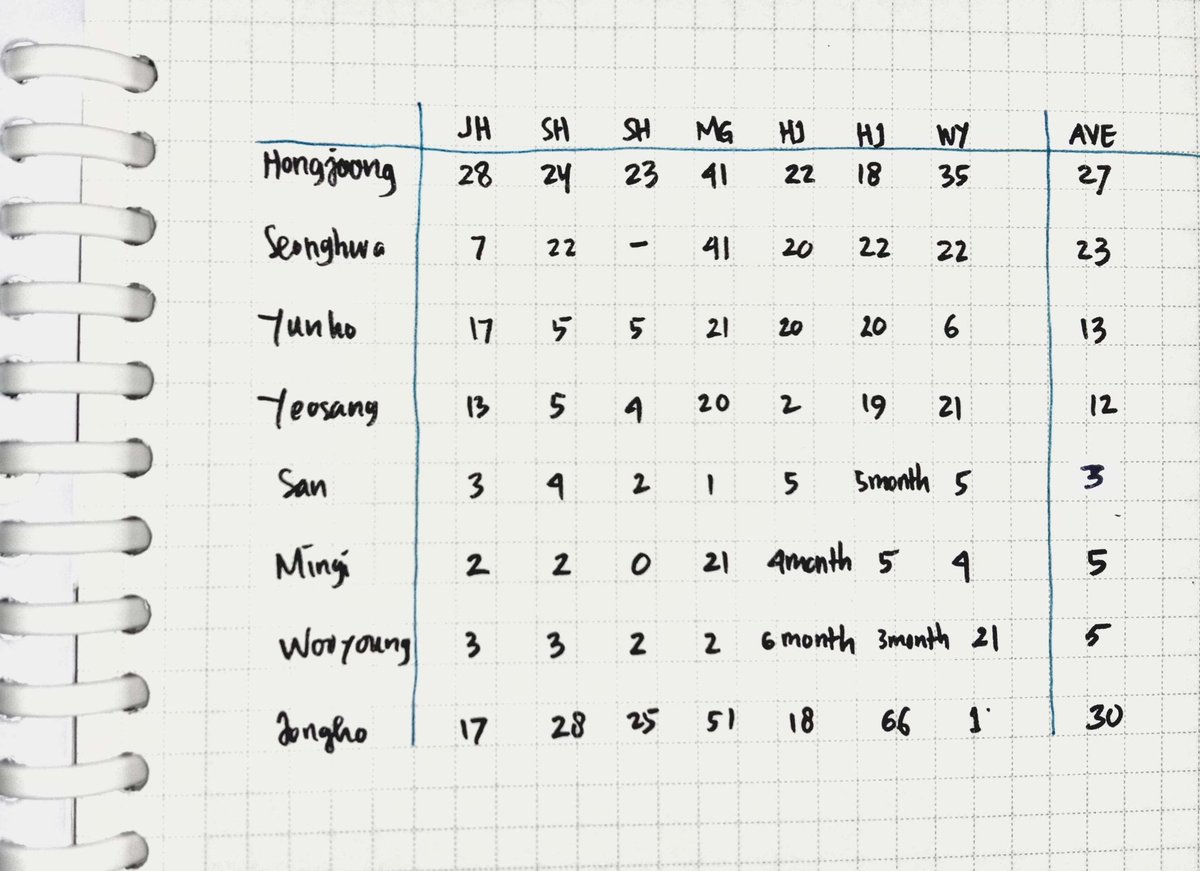 JH SH SH MG HJ HJ WY AVE
Hongjoong 28 24 23 41 22 18 35 27
Seonghwa 7 22 - 41 20 22 22 23
Yunho 17 5 5 21 20 20 6 13
Yeosang 13 5 4 20 2 19 21 12
San 3 4 2 1 5 5month 5 3
Mingi 2 2 0 21 4month 5 4 5
Wooyoung 3 3 2 2 6month 3month 21 5
Jongho 17 28 25 51 18 66 1 30